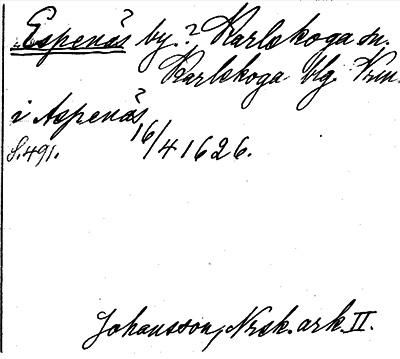 Espenäs by.? Karlskoga sn.
Karlskoga blg. Krm.
i Aspenäs
S. 491. 16/4 1626.
Johansson, Nrsk. ark. II.